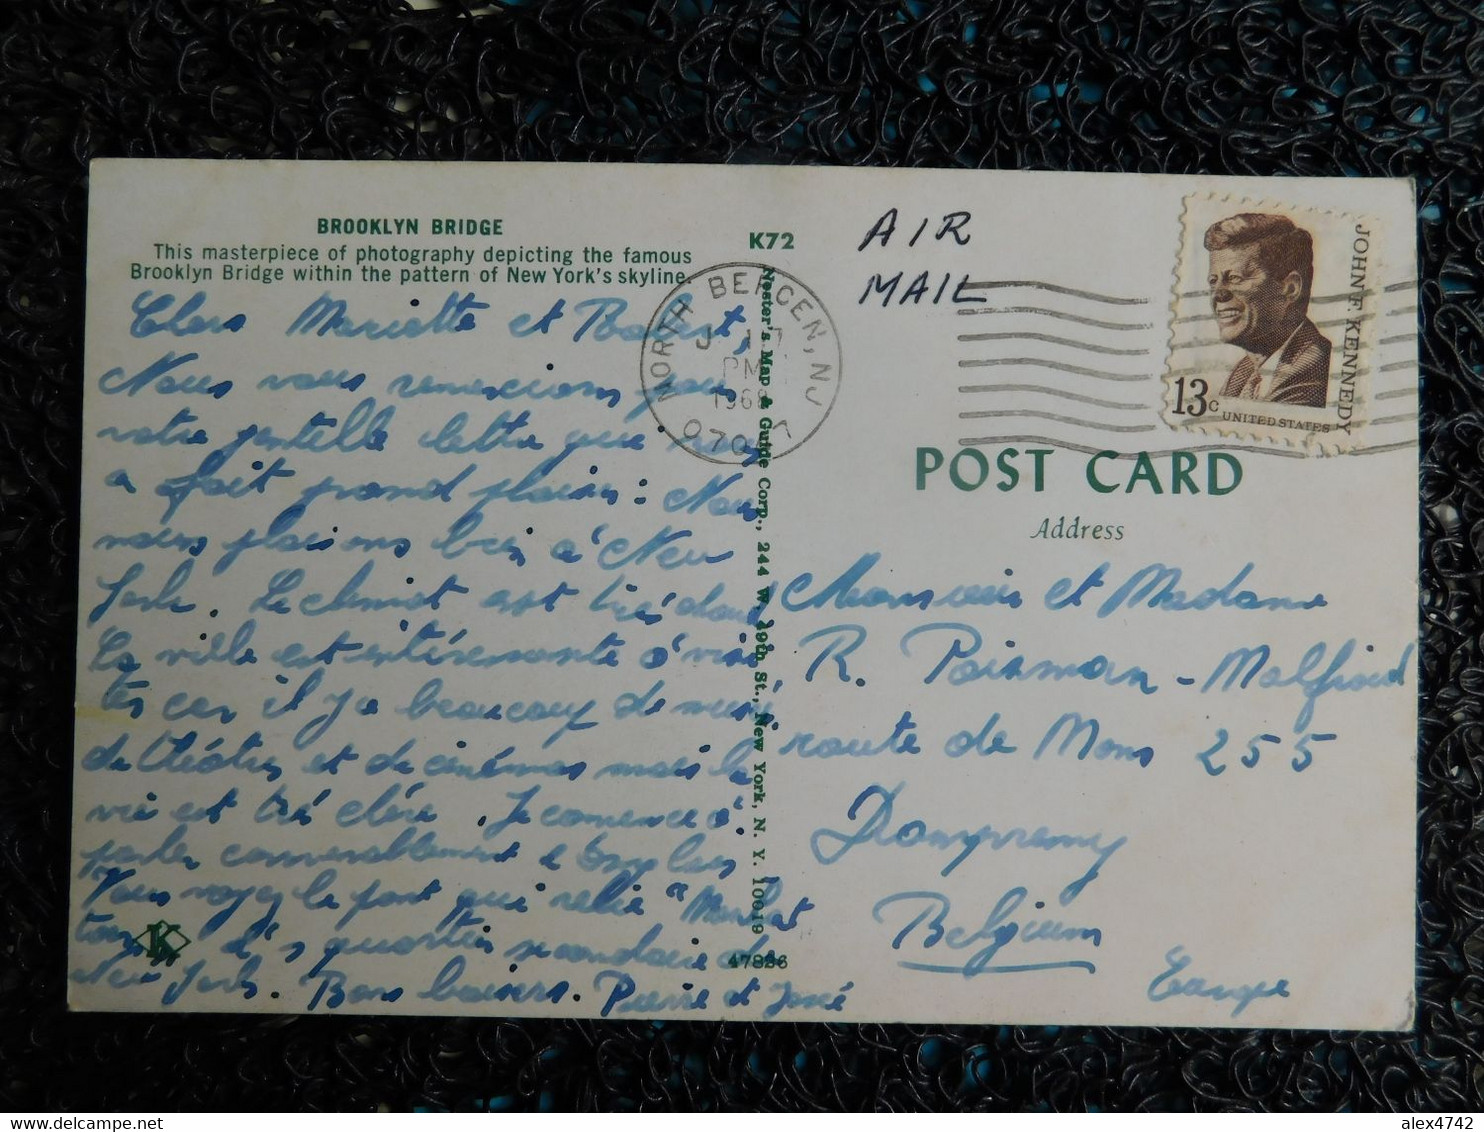 BROOKLYN BRIDGE
This masterpiece of photography depicting the famous
Brooklyn Bridge within the pattern of New York's skyline.
Chers Mariette et Robert,
Nous vous remercions pour
votre gentille lettre qui nous
a fait grand plaisir: Nous
nous plaisons bien à New
York. Le climat est très doux
La ville est intéressante à visi
ter car il y a beaucoup de musé
de théâtres et de cinémas mais la
vie est tré chère. Je comence à
parler convenablement
Vous voyez le pont qui relie "Manhat
tan" quartier secondaire de
New York. Bons baisers. Pierre et José
K
K72
Nester's Map & Guide Corp., 244 W. 49th St., New York, N. Y. 10019
47826
NORTH BERGEN, NJ
PM
1968
AIR
MAIL
JOHN F. KENNEDY
13c
UNITED STATES
POST CARD
Address
Monsieur et Madame
R. Poisman - Malfroid
route de Mons 255
Dampremy
Belgium
Europe
alex4742
alex4742